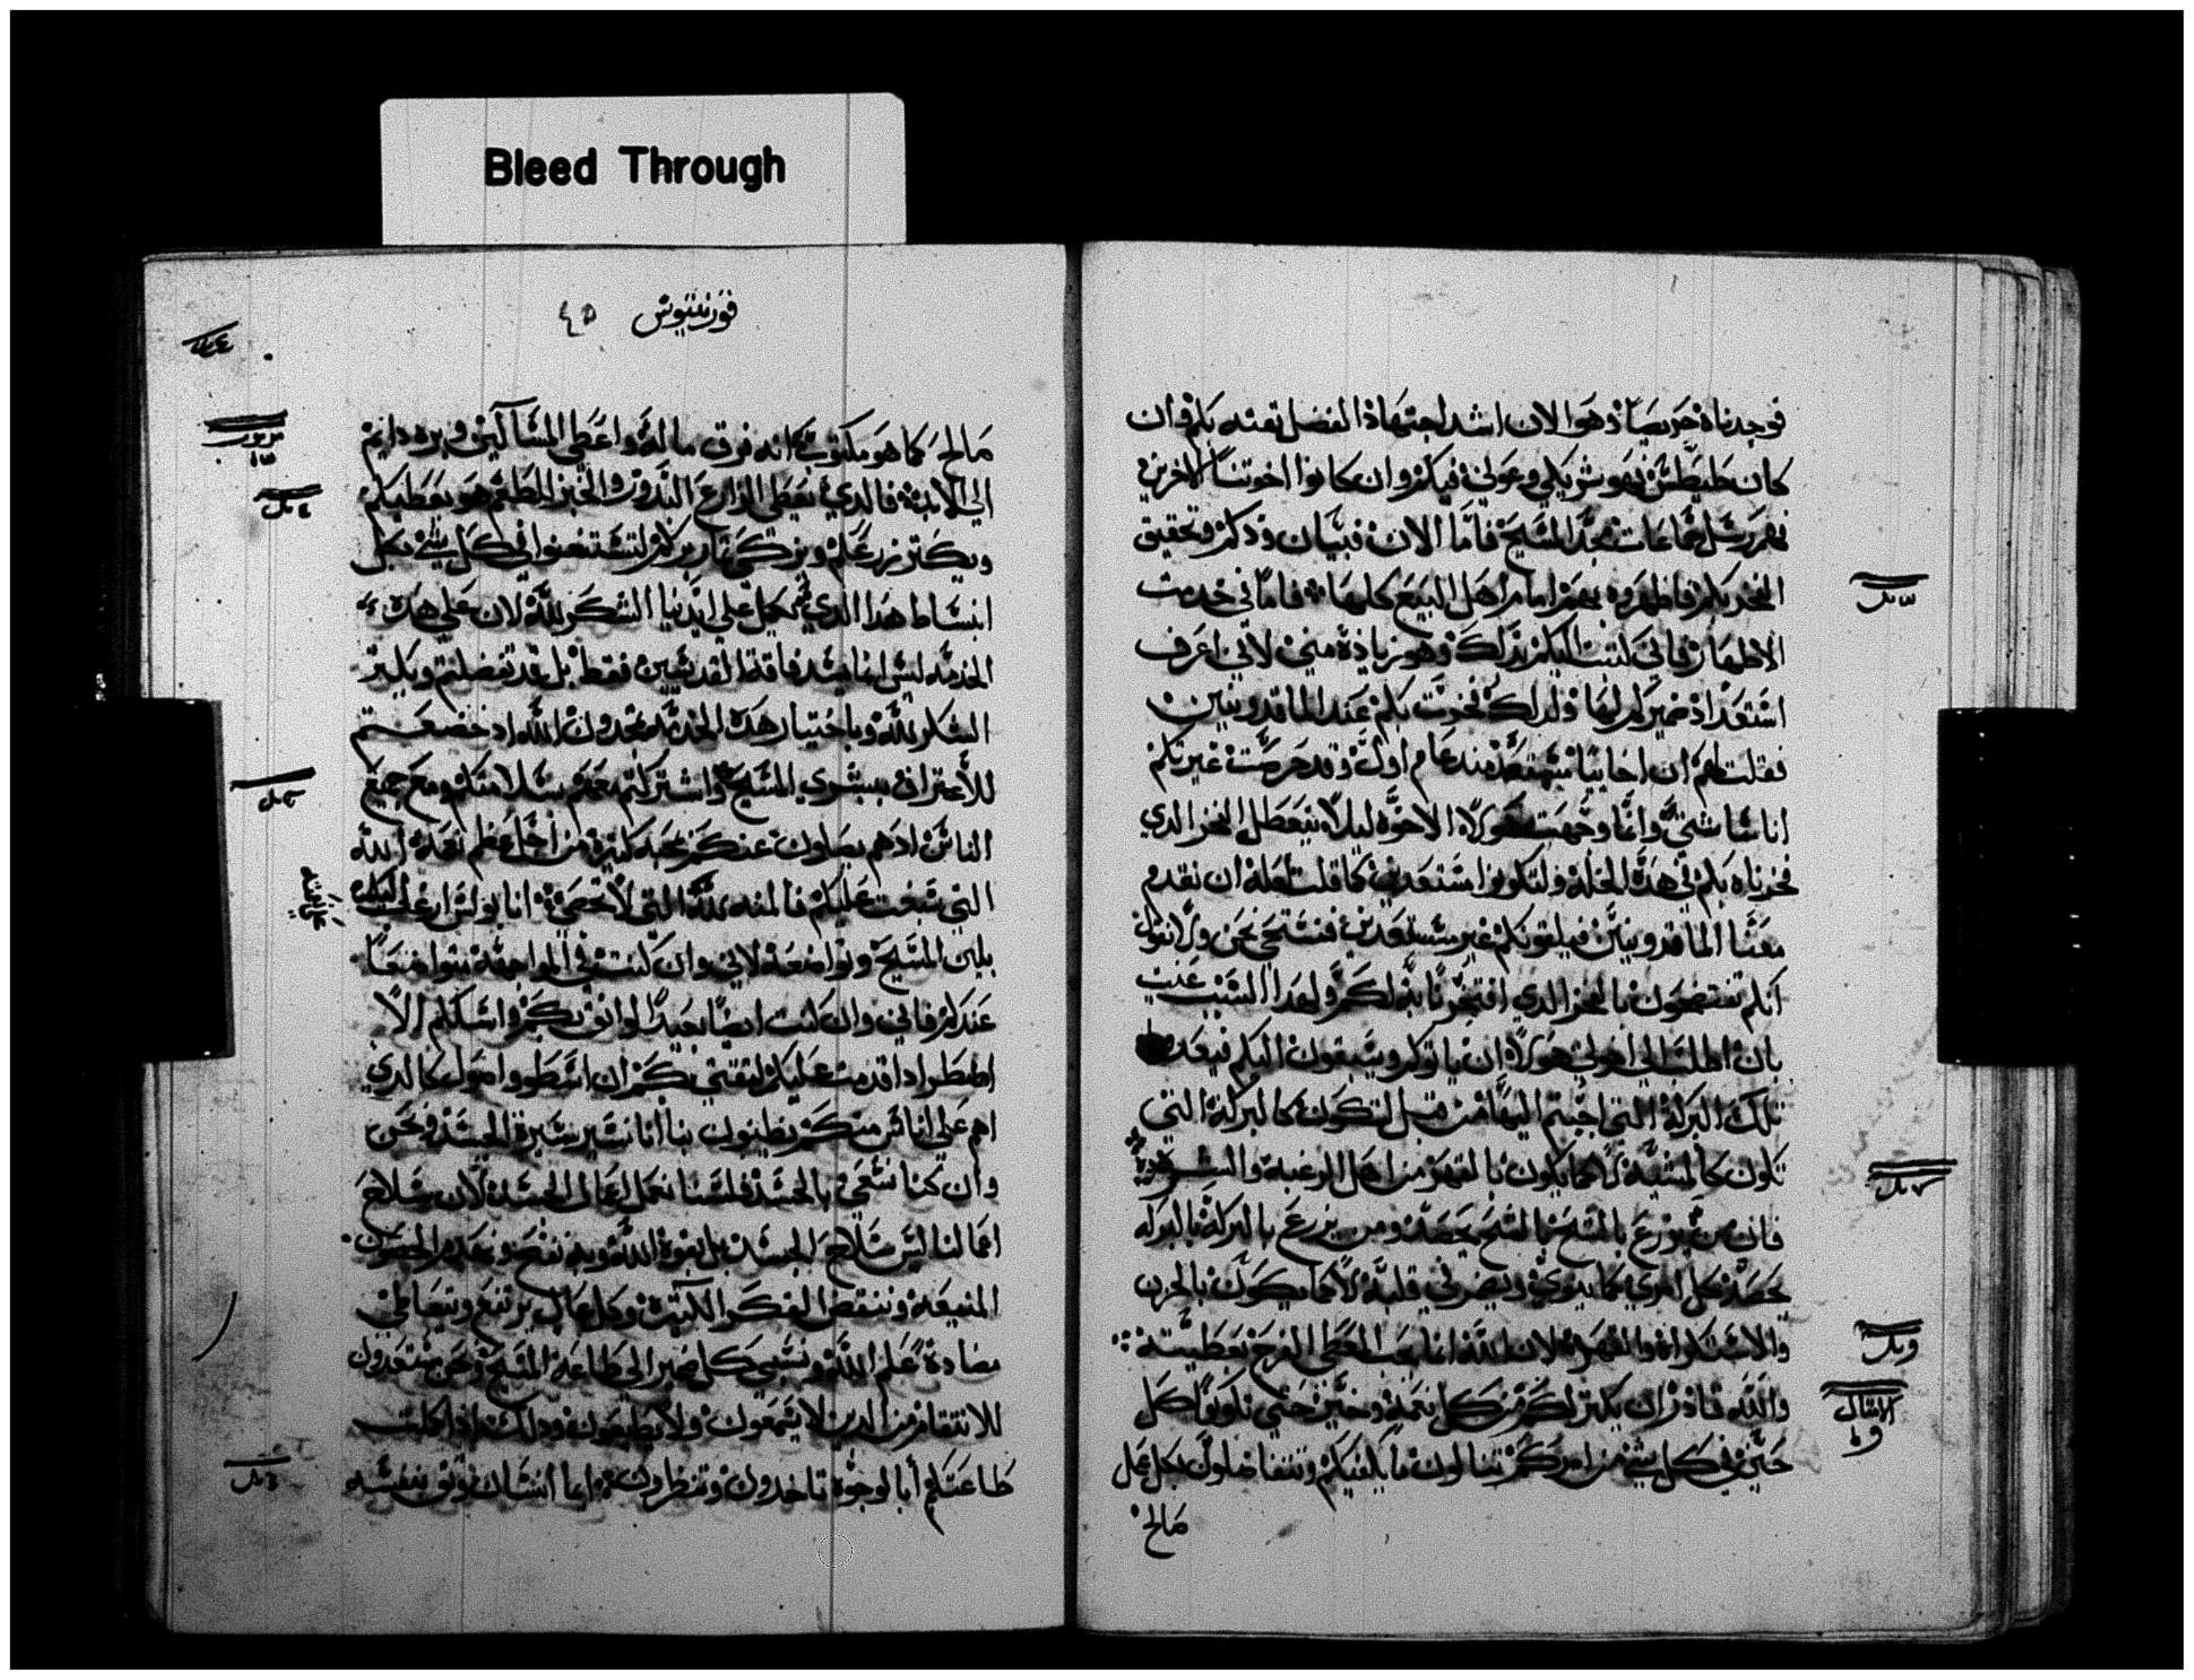 Bleed Through
فوجدناه حريصًا وهو الان اشد اجتهاذا لفضل تقته بكم وان
كان طيطس فهو شريكي وعوني فيكم وان كانوا اخوتنا الاخرين
فهم رسل جماعات مجد المسيح فاما الان فبيان ودكم وتحقيق
الفخر بكم فاظهروه بهم امام اهل البيع كلها فاما في خدمت
الاطهار فاني كتبت اليكم بذلك وهو زيادة مني لاني اعرف
استعداد ضميركم لها ولدلك فخرت بكم عند الماقدونيين
فقلت لهم ان اخاييا متهيه مند عام اول وقد حرصت غيرتكم
اناسًا شتي وانما وجهت هولاء الاخوه ليلا يتعطل الفخر الدي
فخرناه بكم في هده الخله ولتكونوا مستعدين كما قلت لعله ان تقدم
معنا الماقدونيين فيلقونكم غير مستعدين فنستحي نحن ولا نقول
انكم تفتضحون بالفخر الدي افتخرنا به لكم ولهدا السبب عنيت
بان اطلب الي اخوتي هولاء ان ياتوكم ويسبقون اليكم فيعدوا
تلك البركة التي اجبتم اليها من قبل لتكون كالبركة التي
تكون كالمشية لا كما يكون بالقهر من اهل الرغبة والشره
فان من يزرع بالشح بالشح يحصد ومن يزرع بالبركة بالبركه
يحصد كل امري كما ينوي ويضمر في قلبه لا كما يكون بالحزن
والاستكراه والقهر لان الله انما يحب المعطي الفرح بعطيته
والله قادر ان يكتر لكم من كل نعمة وخير حتي تكونوا كل
حين في كل شي من امركم تنالون ما يكفيكم وتتفاضلون بكل عمل
صالح
قورنتيوس ٤٥
صالح كما هو مكتوب انه فرق ماله واعطي المساكين وبره دايم
الي الابد فالدي يعطي الزارع البدور والخبز للطعم هو يعطيكم
ويكتر زرعكم ويزكي تمار بركم لتستغنوا في كل شي بكل
انبساط هدا الدي يكمل علي ايدينا الشكر لله لان علي هده
الخدمه ليس انما يسد فاقة القديسين فقط بل قد تفضلتم ويكتر
الشكر لله وباختيار هده الخدمه تمجدون الله اد خضعتم
للاعتراف ببشري المسيح واشتركتم معهم بسلامتكم ومع جميع
الناس اد هم يصلون عنكم بمحبة كتيرة من اجل عظم نعمة الله
التي سبغت عليكم فالمنه لله التي لا تحصي انا بولس ارغب اليكم
بلين المسيح وتواضعه لاني وان كنت في المواجهة متواضعًا
عندكم فاني وان كنت ايضًا بعيدًا لواثق بكم واسالكم الا
اضطر ادا قدمت عليكم لتقتي بكم ان اسطو واصول كالدي
اهم علي اناس منكم يظنون بنا انا نسير سيرة الجسد ونحن
وان كنا نسعي بالجسد فلسنا نعمل اعمال الجسد لان سلاح
اعمالنا ليس سلاح الجسد بل بقوة الله وبه نفتح ونهدم الحصون
المنيعة وننقض الفكر الكتيرة وكل عال يرتفع ويتعاطي
مضادة علم الله ونسبي كل ضمير الي طاعة المسيح ونحن مستعدون
للانتقام من الدين لا يسمعون ولا يطيعون ودلك ادا كملت
طاعتكم أبالوجوه تاخدون وتنظرون ايما انسان وتق بنفسه